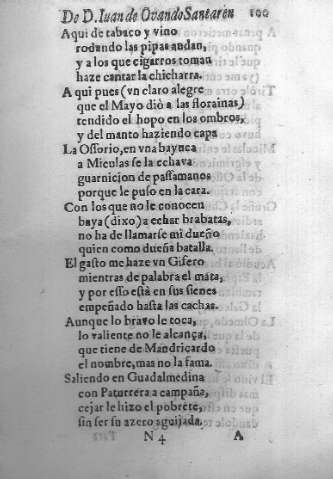 De D. Iuan de Ovando Santarèn 100
Aqui de tabaco y vino
rodando las pipas andan,
y a los que cigarros toman
haze cantar la chicharra.
A qui pues (vn claro alegre
que el Mayo diò a las florainas)
tendido el hopo en los ombros,
y del manto haziendo capa
La Ossorio, en vna bayuca
a Miculas se la echava
guarnicion de passamanos
porque le puso en la cara.
Con los que no le conocen
baya (dixo) a echar brabatas,
no ha de llamarse mi dueño
quien como dueña batalla.
El gasto me haze vn Gifero
mientras de palabra el mata,
y por esso està en sus sienes
empeñado hasta las cachas.
Aunque lo bravo le toca,
lo valiente no le alcança,
que tiene de Mandricardo
el nombre, mas no la fama.
Saliendo en Guadalmedina
con Paturrera a campaña,
cejar le hizo el pobrete,
sin ser su azero aguijada.
N 4 A